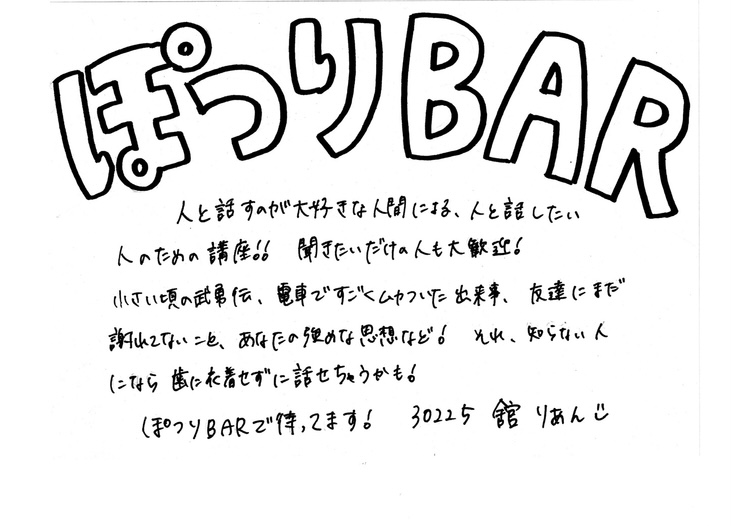 ぽつりBAR
人と話すのが大好きな人間による、人と話したい
人のための講座!! 聞きたいだけの人も大歓迎!
小さい頃の武勇伝、電車ですごくムカついた出来事、友達にまだ
謝れてないこと、あなたの強めな思想など! それ、知らない人
になら歯に衣着せずに話せちゃうかも!
ぽつりBARで待ってます! 30225 舘 りあん